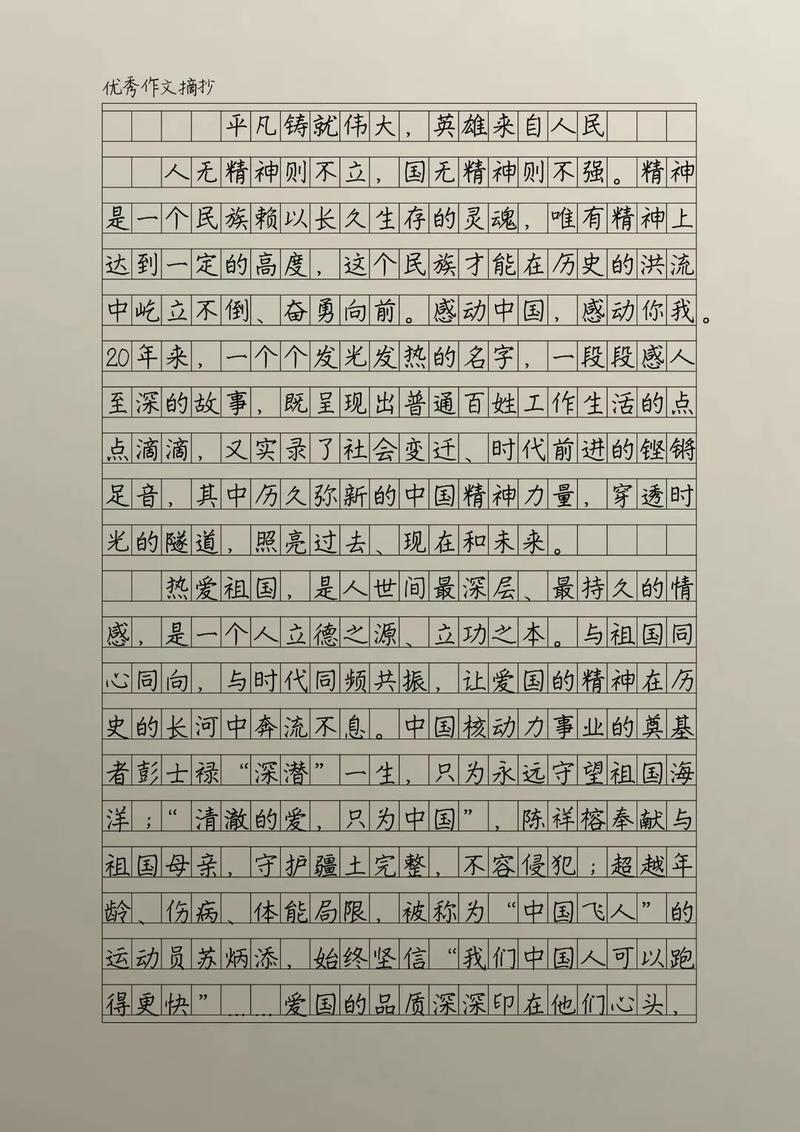 优秀作文摘抄
平凡铸就伟大，英雄来自人民
人无精神则不立，国无精神则不强。精神
是一个民族赖以长久生存的灵魂，唯有精神上
达到一定的高度，这个民族才能在历史的洪流
中屹立不倒、奋勇向前。感动中国，感动你我。
20年来，一个个发光发热的名字，一段段感人
至深的故事，既呈现出普通百姓工作生活的点
点滴滴，又实录了社会变迁、时代前进的铿锵
足音，其中历久弥新的中国精神力量，穿透时
光的隧道，照亮过去、现在和未来。
热爱祖国，是人世间最深层、最持久的情
感，是一个人立德之源、立功之本。与祖国同
心同向，与时代同频共振，让爱国的精神在历
史的长河中奔流不息。中国核动力事业的奠基
者彭士禄“深潜”一生，只为永远守望祖国海
洋；“清澈的爱，只为中国”，陈祥榕奉献与
祖国母亲，守护疆土完整，不容侵犯；超越年
龄、伤病、体能局限，被称为“中国飞人”的
运动员苏炳添，始终坚信“我们中国人可以跑
得更快”……爱国的品质深深印在他们心头，